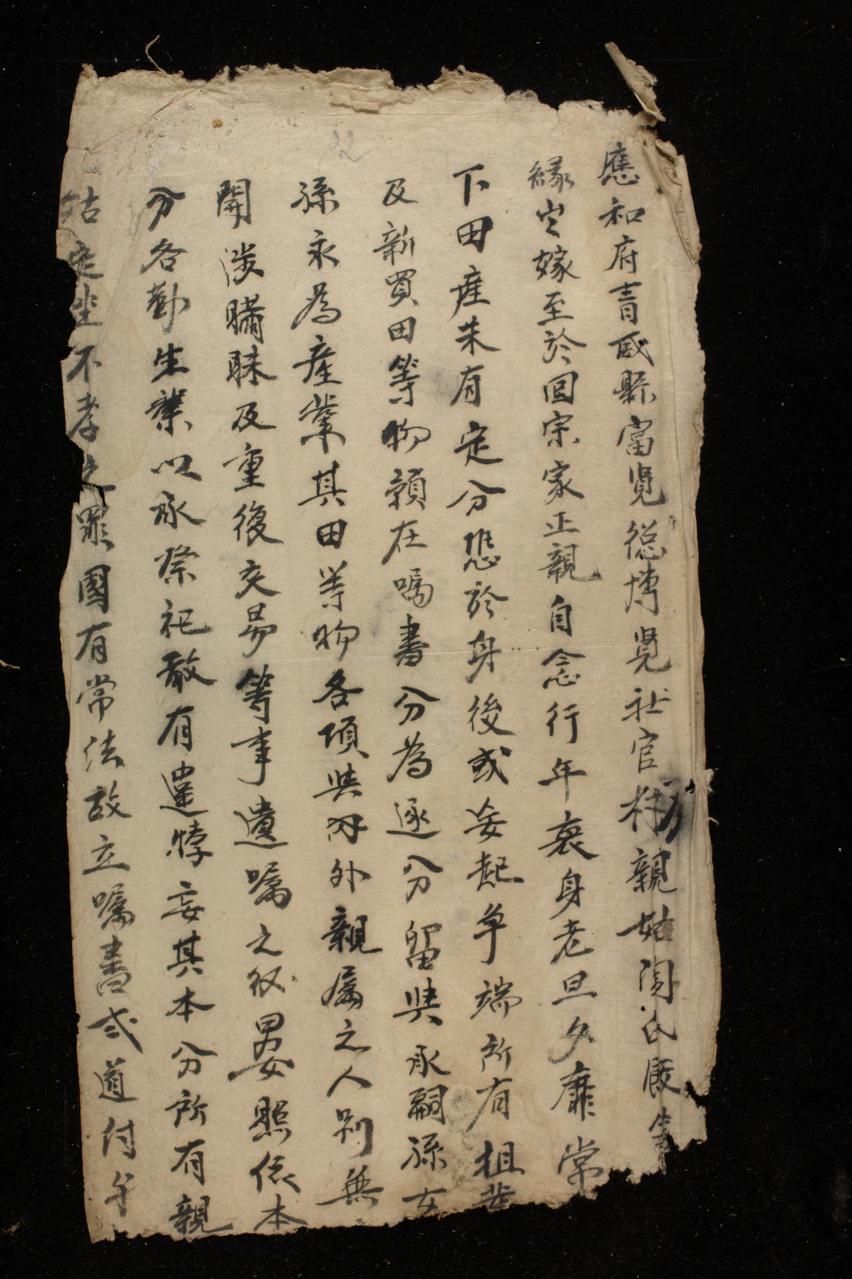 應和府青威縣富覽總博覽社官村親姑阮氏殿等
緣出嫁至於囘宗家正親自念行年衰身老旦夕靡常
下田產未有定分恐於身後或妄起爭端所有祖業
及新買田等物賴在囑書分為逐分留與承嗣孫女
孫永為產業其田等物各項與內外親属之人別無
開潑瞞昧及重復交易等事遺囑之後男女照依本
分各勤生業以承祭祀敢有違悖妄其本分所有親
姑定坐不孝之罪國有常法故立囑書弍道付